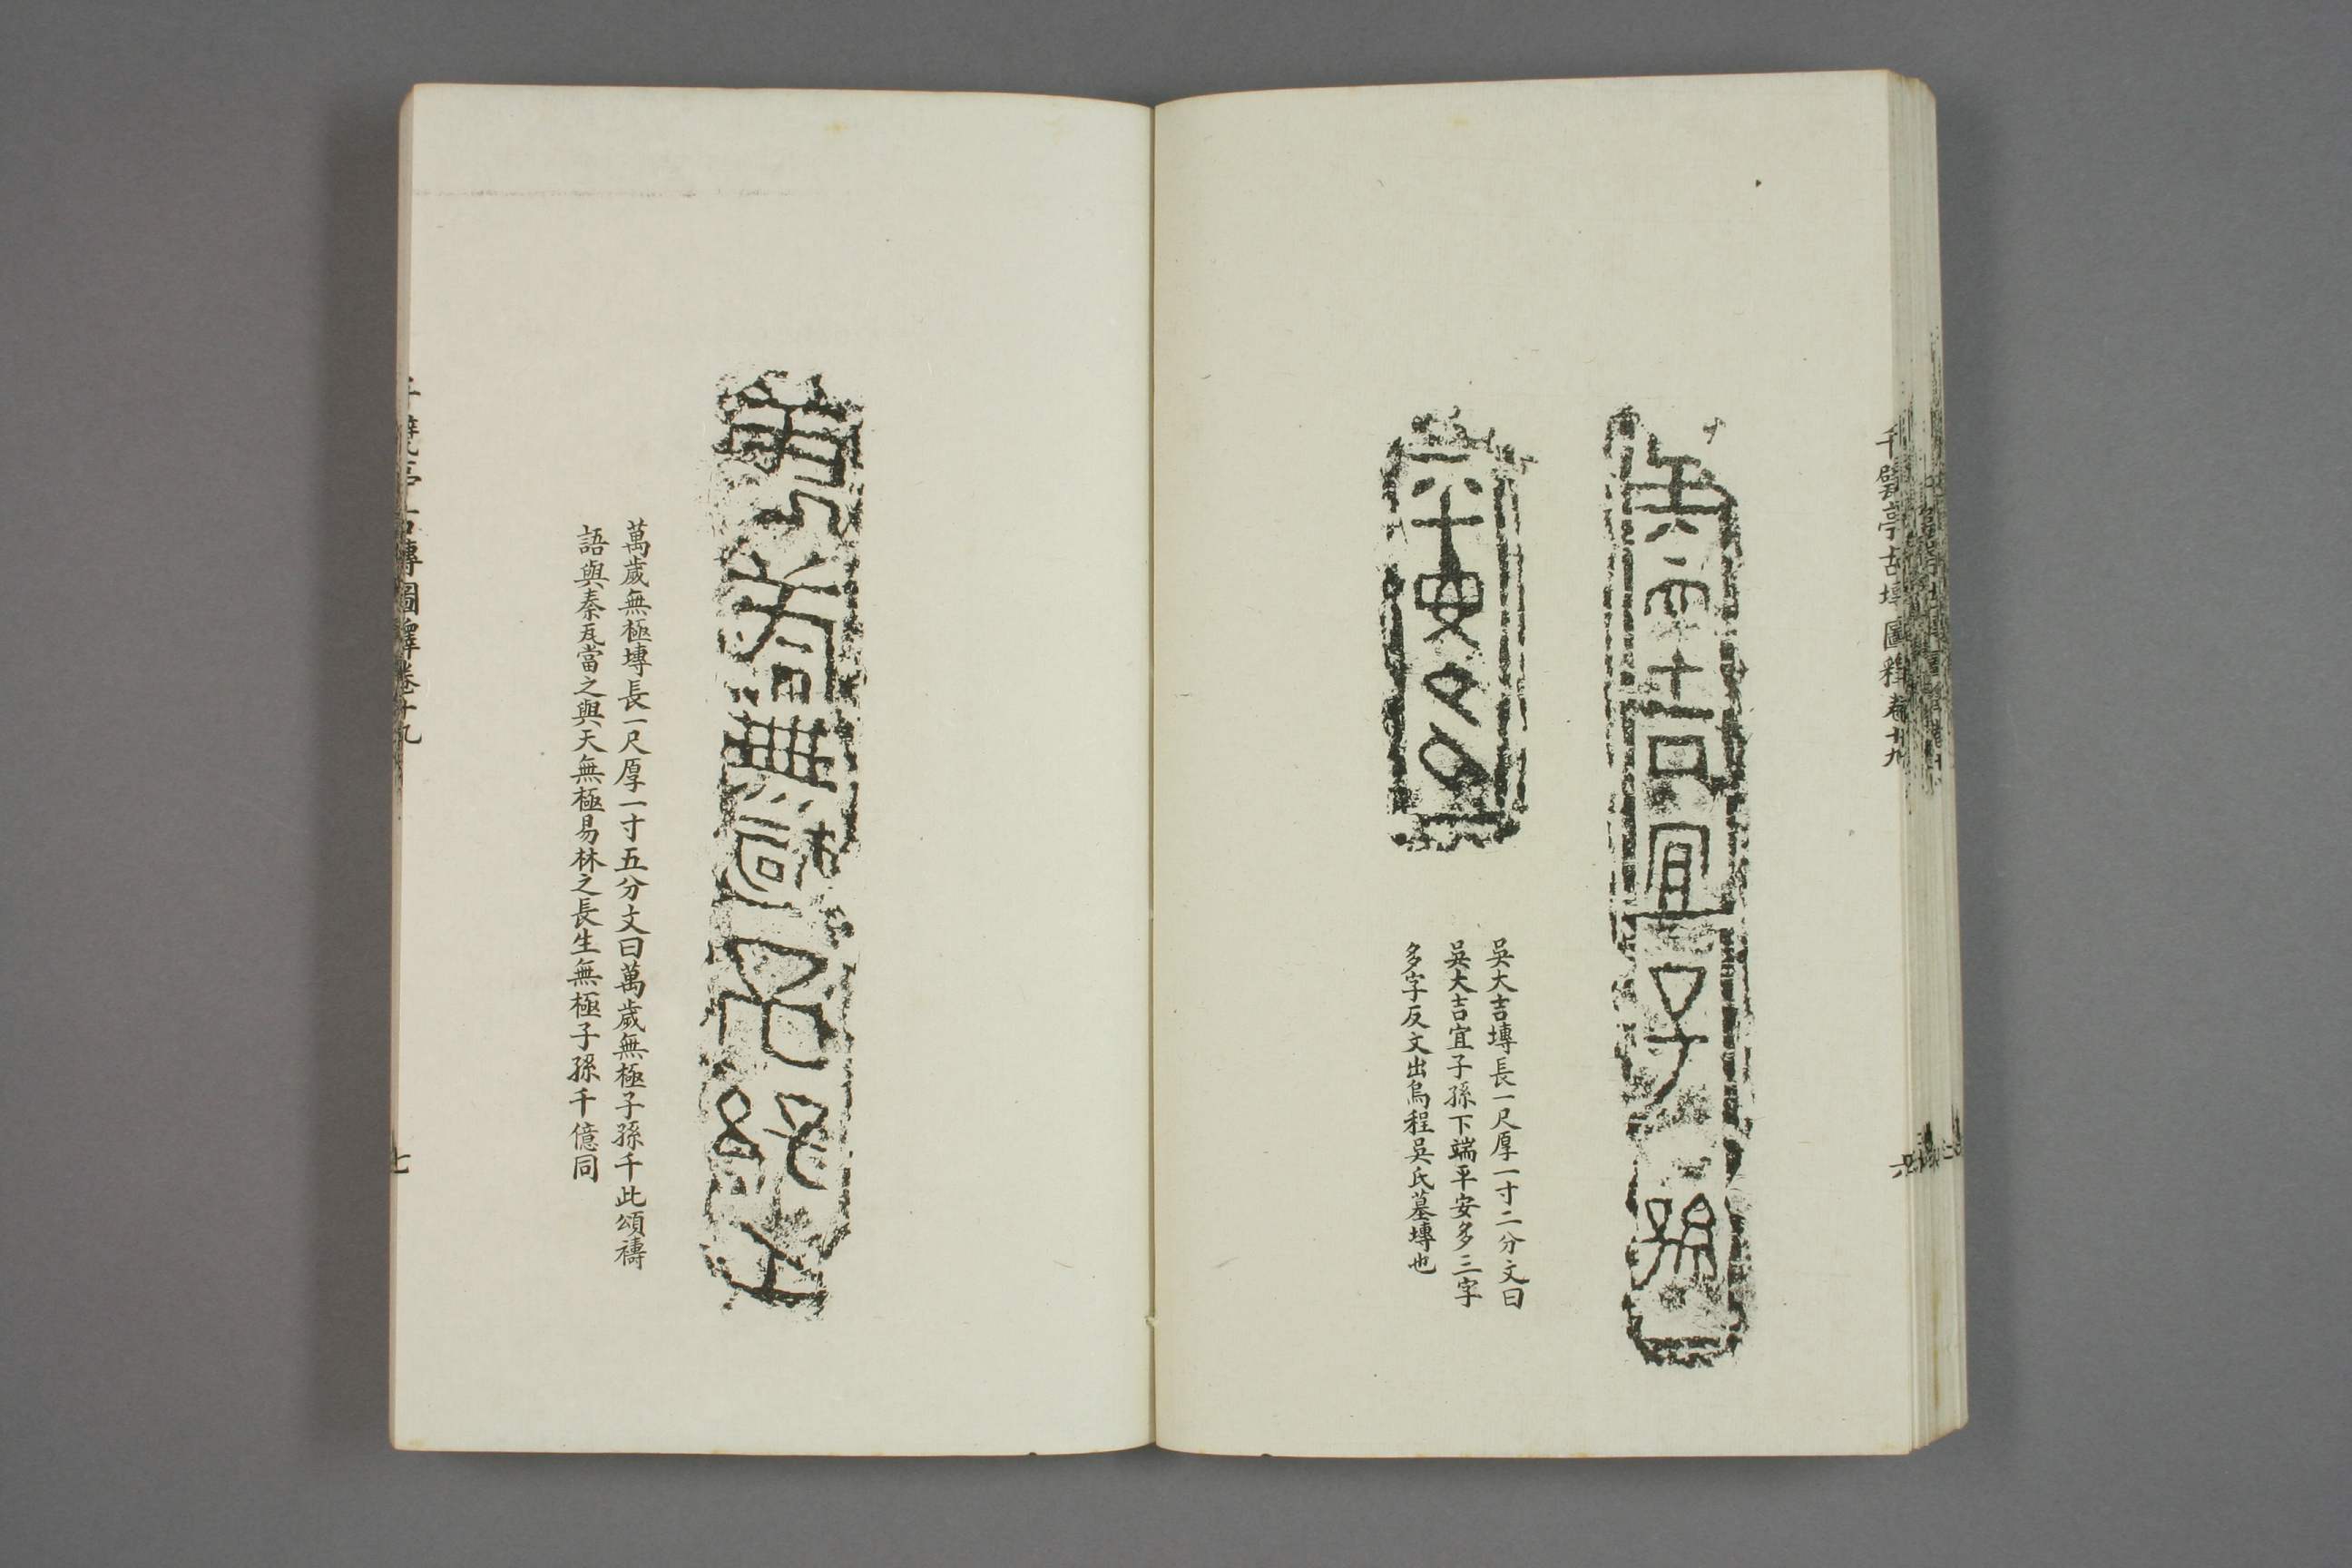 千甓亭古塼圖釋卷十九
六
吳大吉宜子孫
平安多
吳大吉塼長一尺厚一寸二分文曰
吳大吉宜子孫下端平安多三字
多字反文出烏程吳氏墓塼也
萬歲無極子孫千
萬歲無極塼長一尺厚一寸五分文曰萬歲無極子孫千此頌禱
語與秦瓦當之與天無極易林之長生無極子孫千億同
千甓亭古塼圖釋卷十九
七